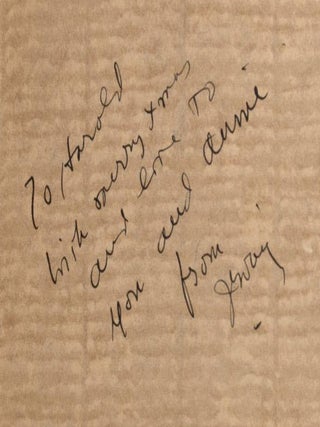 To Harold
With merry xmas
and love to
you and annie
from